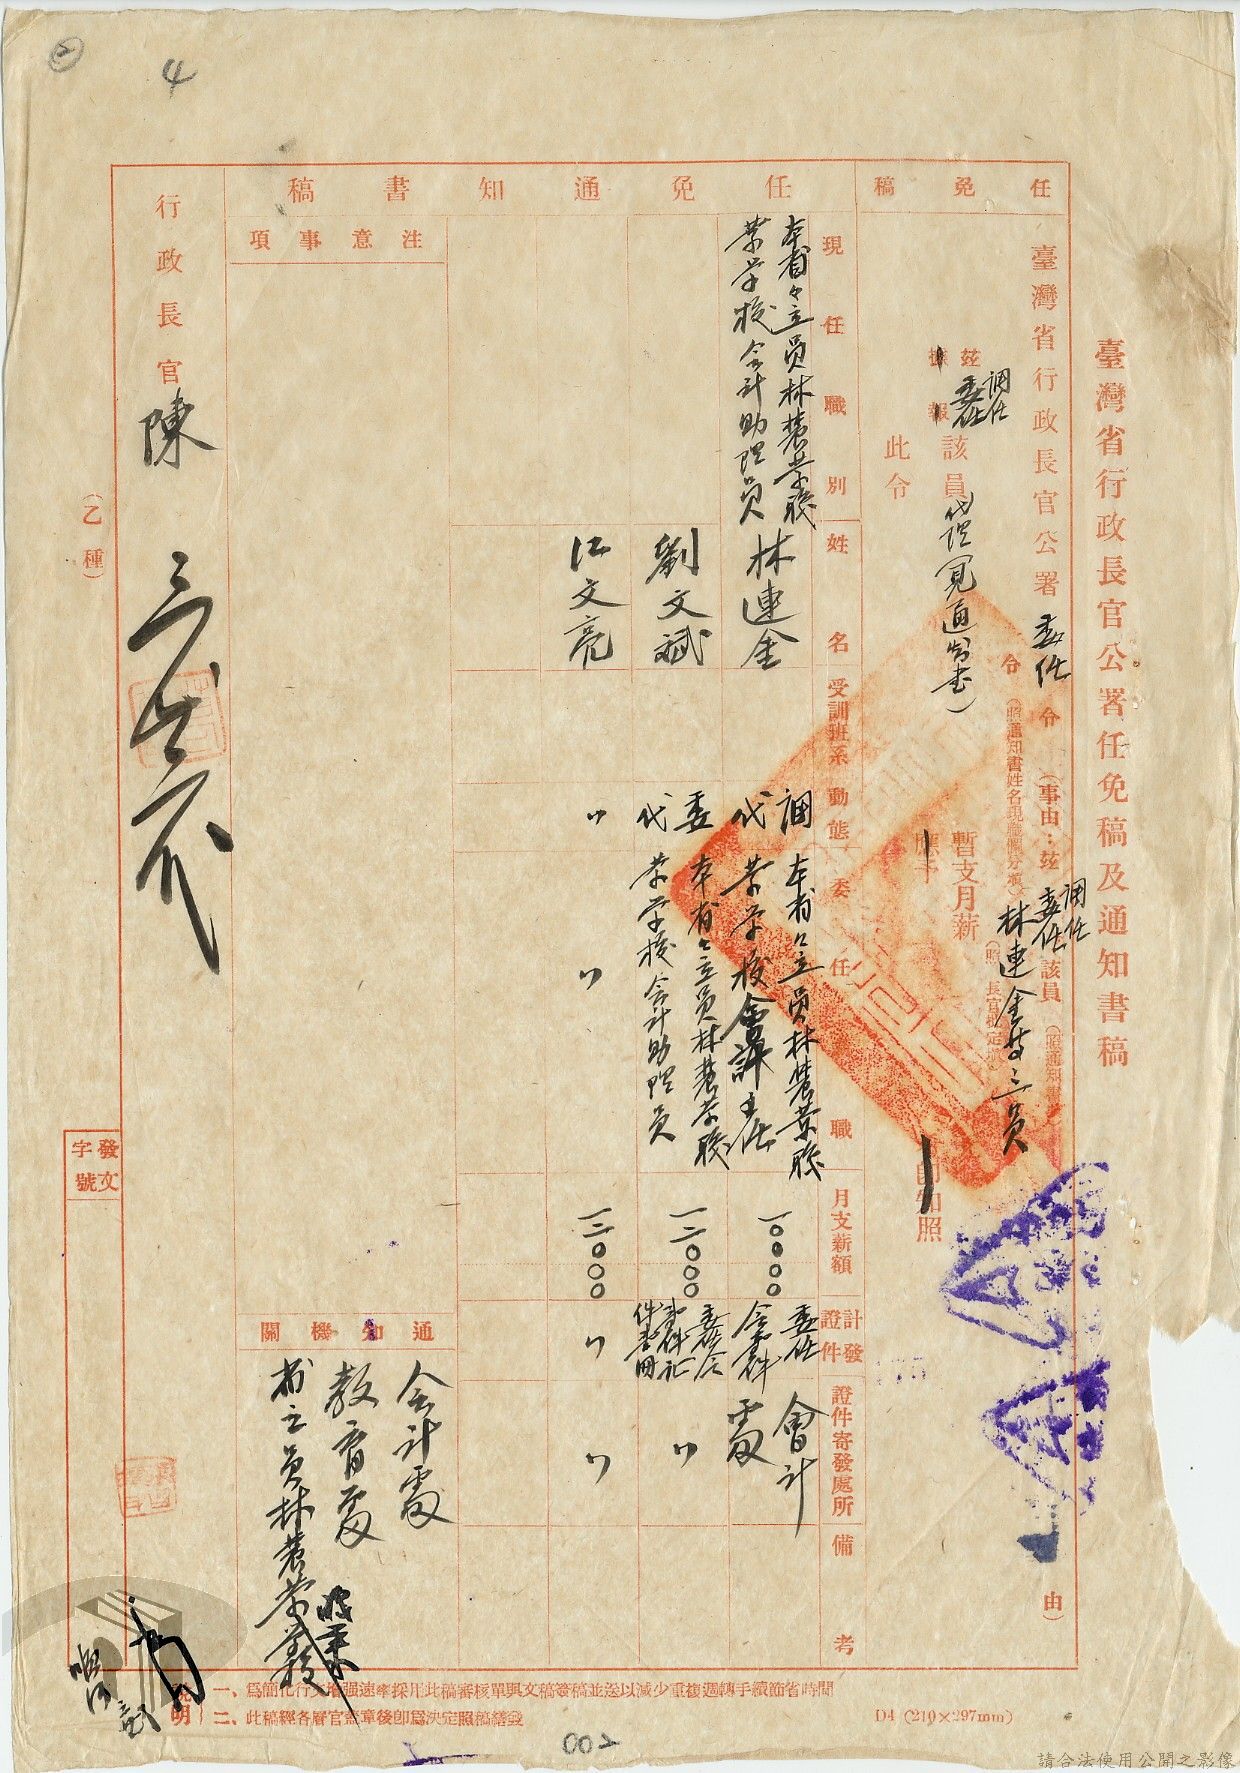 4
臺灣省行政長官公署任免稿及通知書稿
任免稿
臺灣省行政長官公署委任令
(事由:茲調任委任該員(照通知書)
由)
令(照通知書姓名現職個分填)林連金等三員
茲調任委任該員代理(見通知書)
暫支月薪(照長官批定填)
據報
應予
知照
此令
任免通知書稿
現任職別
姓名
受訓班系
動態
委任職
月支薪額
計發證件
證件寄發處所
備考
本省々立員林農業職業學校會計助理員
林連金
調代
本省々立員林農業職業學校會計主任
一〇〇〇〇
委任令
會計處
劉文斌
委代
本省々立員林農業職業學校會計助理員
一二〇〇〇
〃
江文亮
〃
〃
一二〇〇〇
〃
〃
注意事項
通知機關
會計處
教育處
省立員林農業職業學校
行政長官陳
(乙種)
發文
字號
說明
一、為簡化行文增强速率採用此稿審核單與文稿簽稿並送以減少重複週轉手續節省時間
二、此稿經各層官蓋章後卽為決定照稿繕發
D4 (210×297mm)
002
請合法使用公開之影像